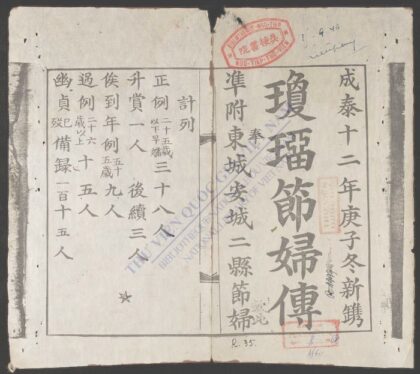 成泰十二年庚子冬新鐫
瓊瑠節婦傳
奉
準附東城安城二縣節婦
計列
正例二十五歲以下早孀三十八人
升賞一人 後續三人
俟到年例五十五歲九人
過例二十六歲以上十五人
幽貞已歿備錄一百十五人
R. 35.
THƯ VIỆN QUỐC GIA VIỆT NAM
NATIONAL LIBRARY OF VIETNAM